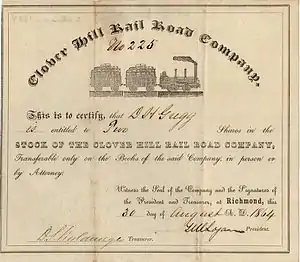 Clover Hill Rail Road Company.
No 225
This is to certify, that D H Gugg
is entitled to Two Shares in the
STOCK OF THE CLOVER HILL RAIL ROAD COMPANY,
Transferable only on the Books of the said Company, in person or
by Attorney.
Witness the Seal of the Company and the Signatures of
the President and Treasurer, at Richmond, this
30 day of August A. D. 1864
President.
Treasurer.